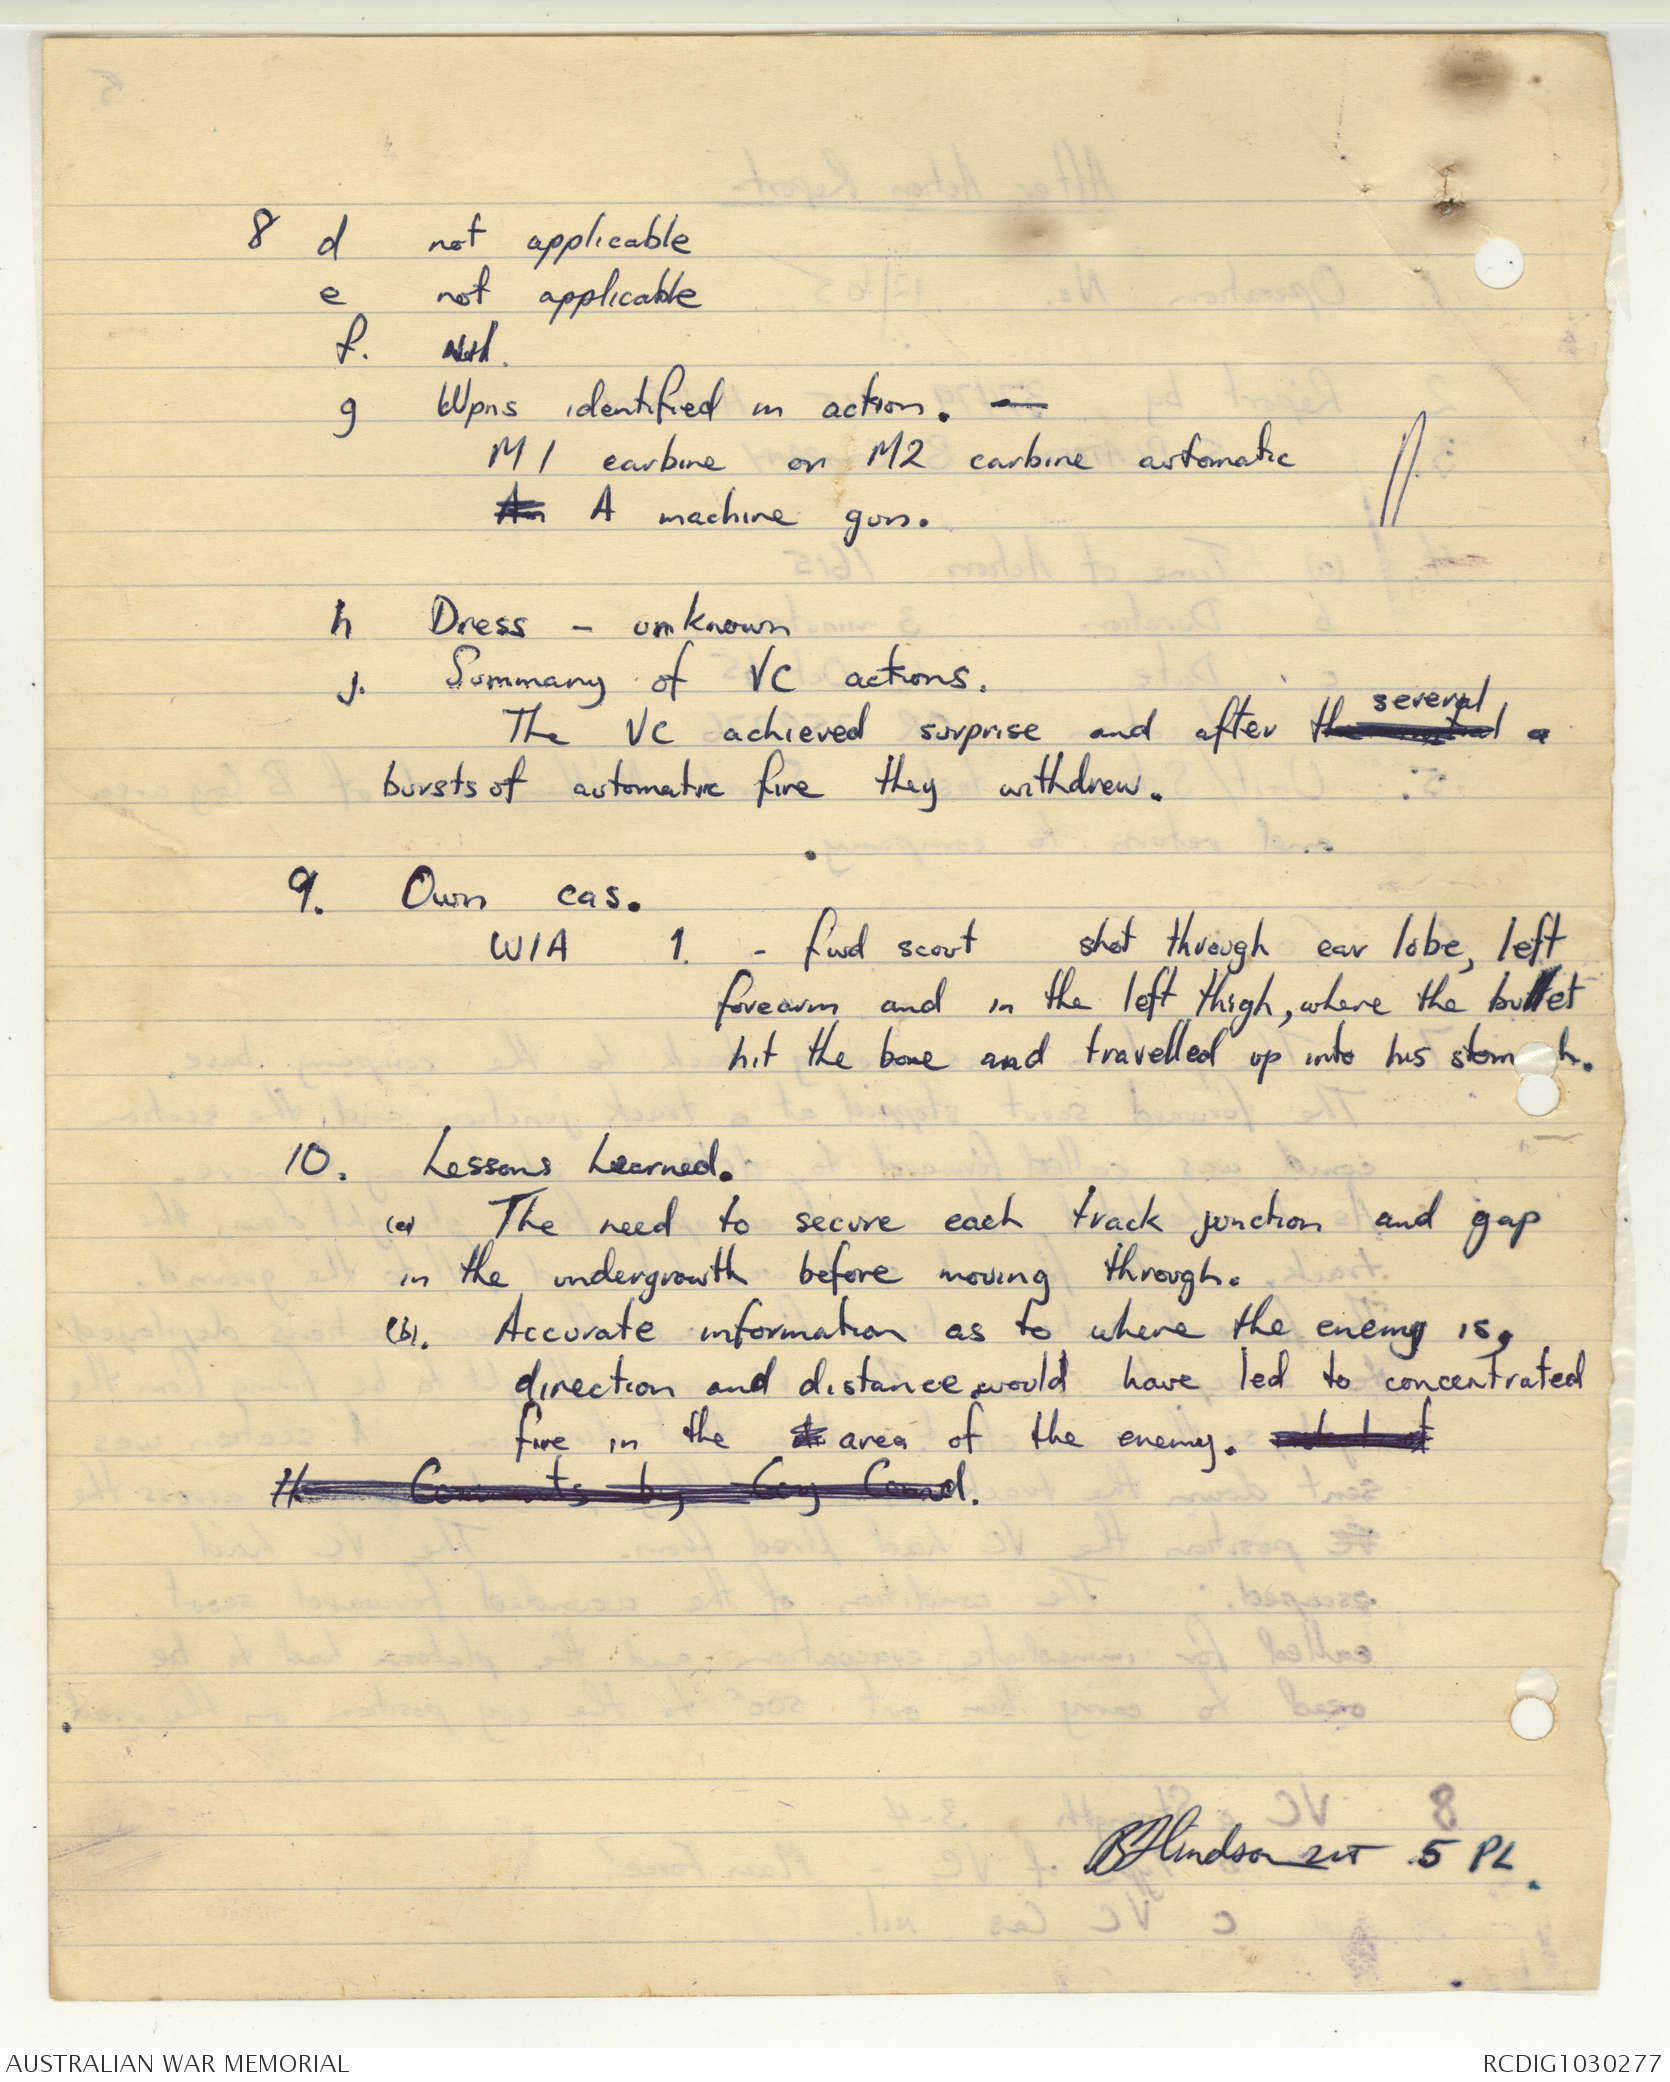 8 d not applicable
e not applicable
f. Nil.
g Wpns identified in action. —
M1 carbine or M2 carbine automatic
An A machine gun.
h Dress - unknown
j. Summary of VC actions.
several
The VC achieved surprise and after the initial a
bursts of automatic fire they withdrew.
9. Own cas.
WIA 1. - fwd scout shot through ear lobe, left
forearm and in the left thigh, where the bullet
hit the bone and travelled up into his stom h.
10. Lessons Learned.
(a) The need to secure each track junction and gap
in the undergrowth before moving through.
(b). Accurate information as to where the enemy is,
direction and distance, would have led to concentrated
fire in the area of the enemy.
Comments by Coy Comd.
B Hindson 2LT 5 PL.
AUSTRALIAN WAR MEMORIAL
RCDIG1030277